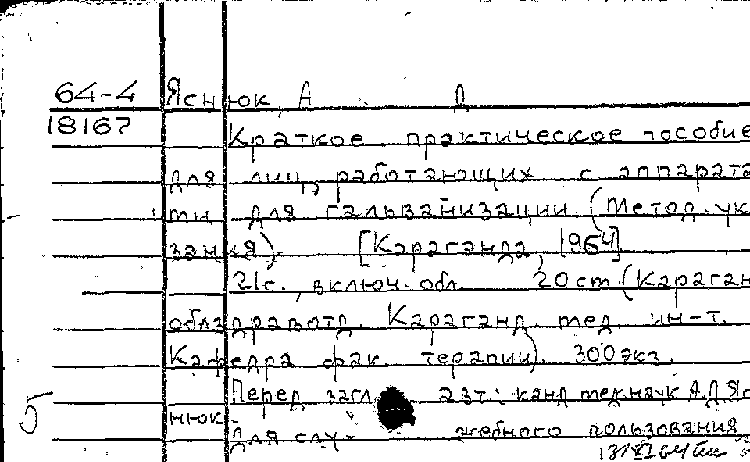 64-4 Яснюк, А. Д.
18167
Краткое практическое пособие
для лиц, работающих с аппарата-
ми для гальванизации (Метод. ука-
зания). [Караганда, 1964].
21с., включ. обл. 20 cm (Караган.
облздравотд. Караганд. мед. ин-т.
Кафедра фак. терапии). 300 экз.
Перед загл. авт.: канд. мед. наук А.Д. Яс-
5 нюк
Для служебного пользования